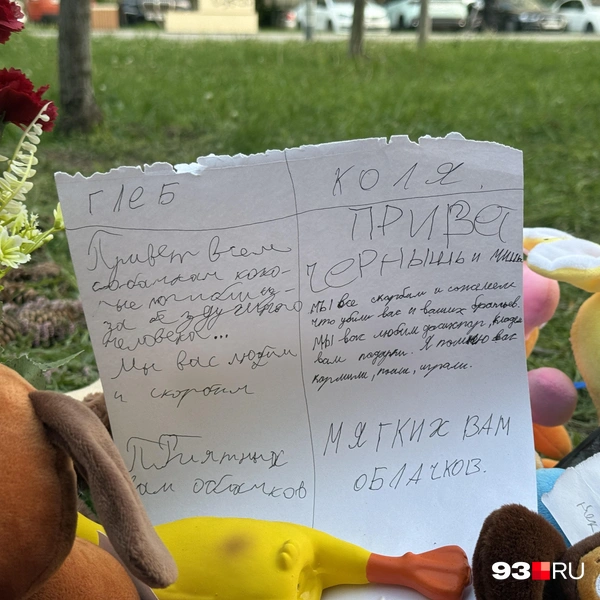 ГЛЕБ
Привет всем
собачкам кото-
рые погибли из-
за бездушного
человека...
Мы вас любим
и скорбим
Приятных
вам облачков
КОЛЯ.
ПРИВЕТ
ЧЕРНЫШЬ И МИША
МЫ все скорбим и сожелеем
что убили вас и ваших братьев.
МЫ вас любим
вам подарки. Я помню вас
кормили, поили, играли.
МЯГКИХ ВАМ
ОБЛАЧКОВ.
93.RU